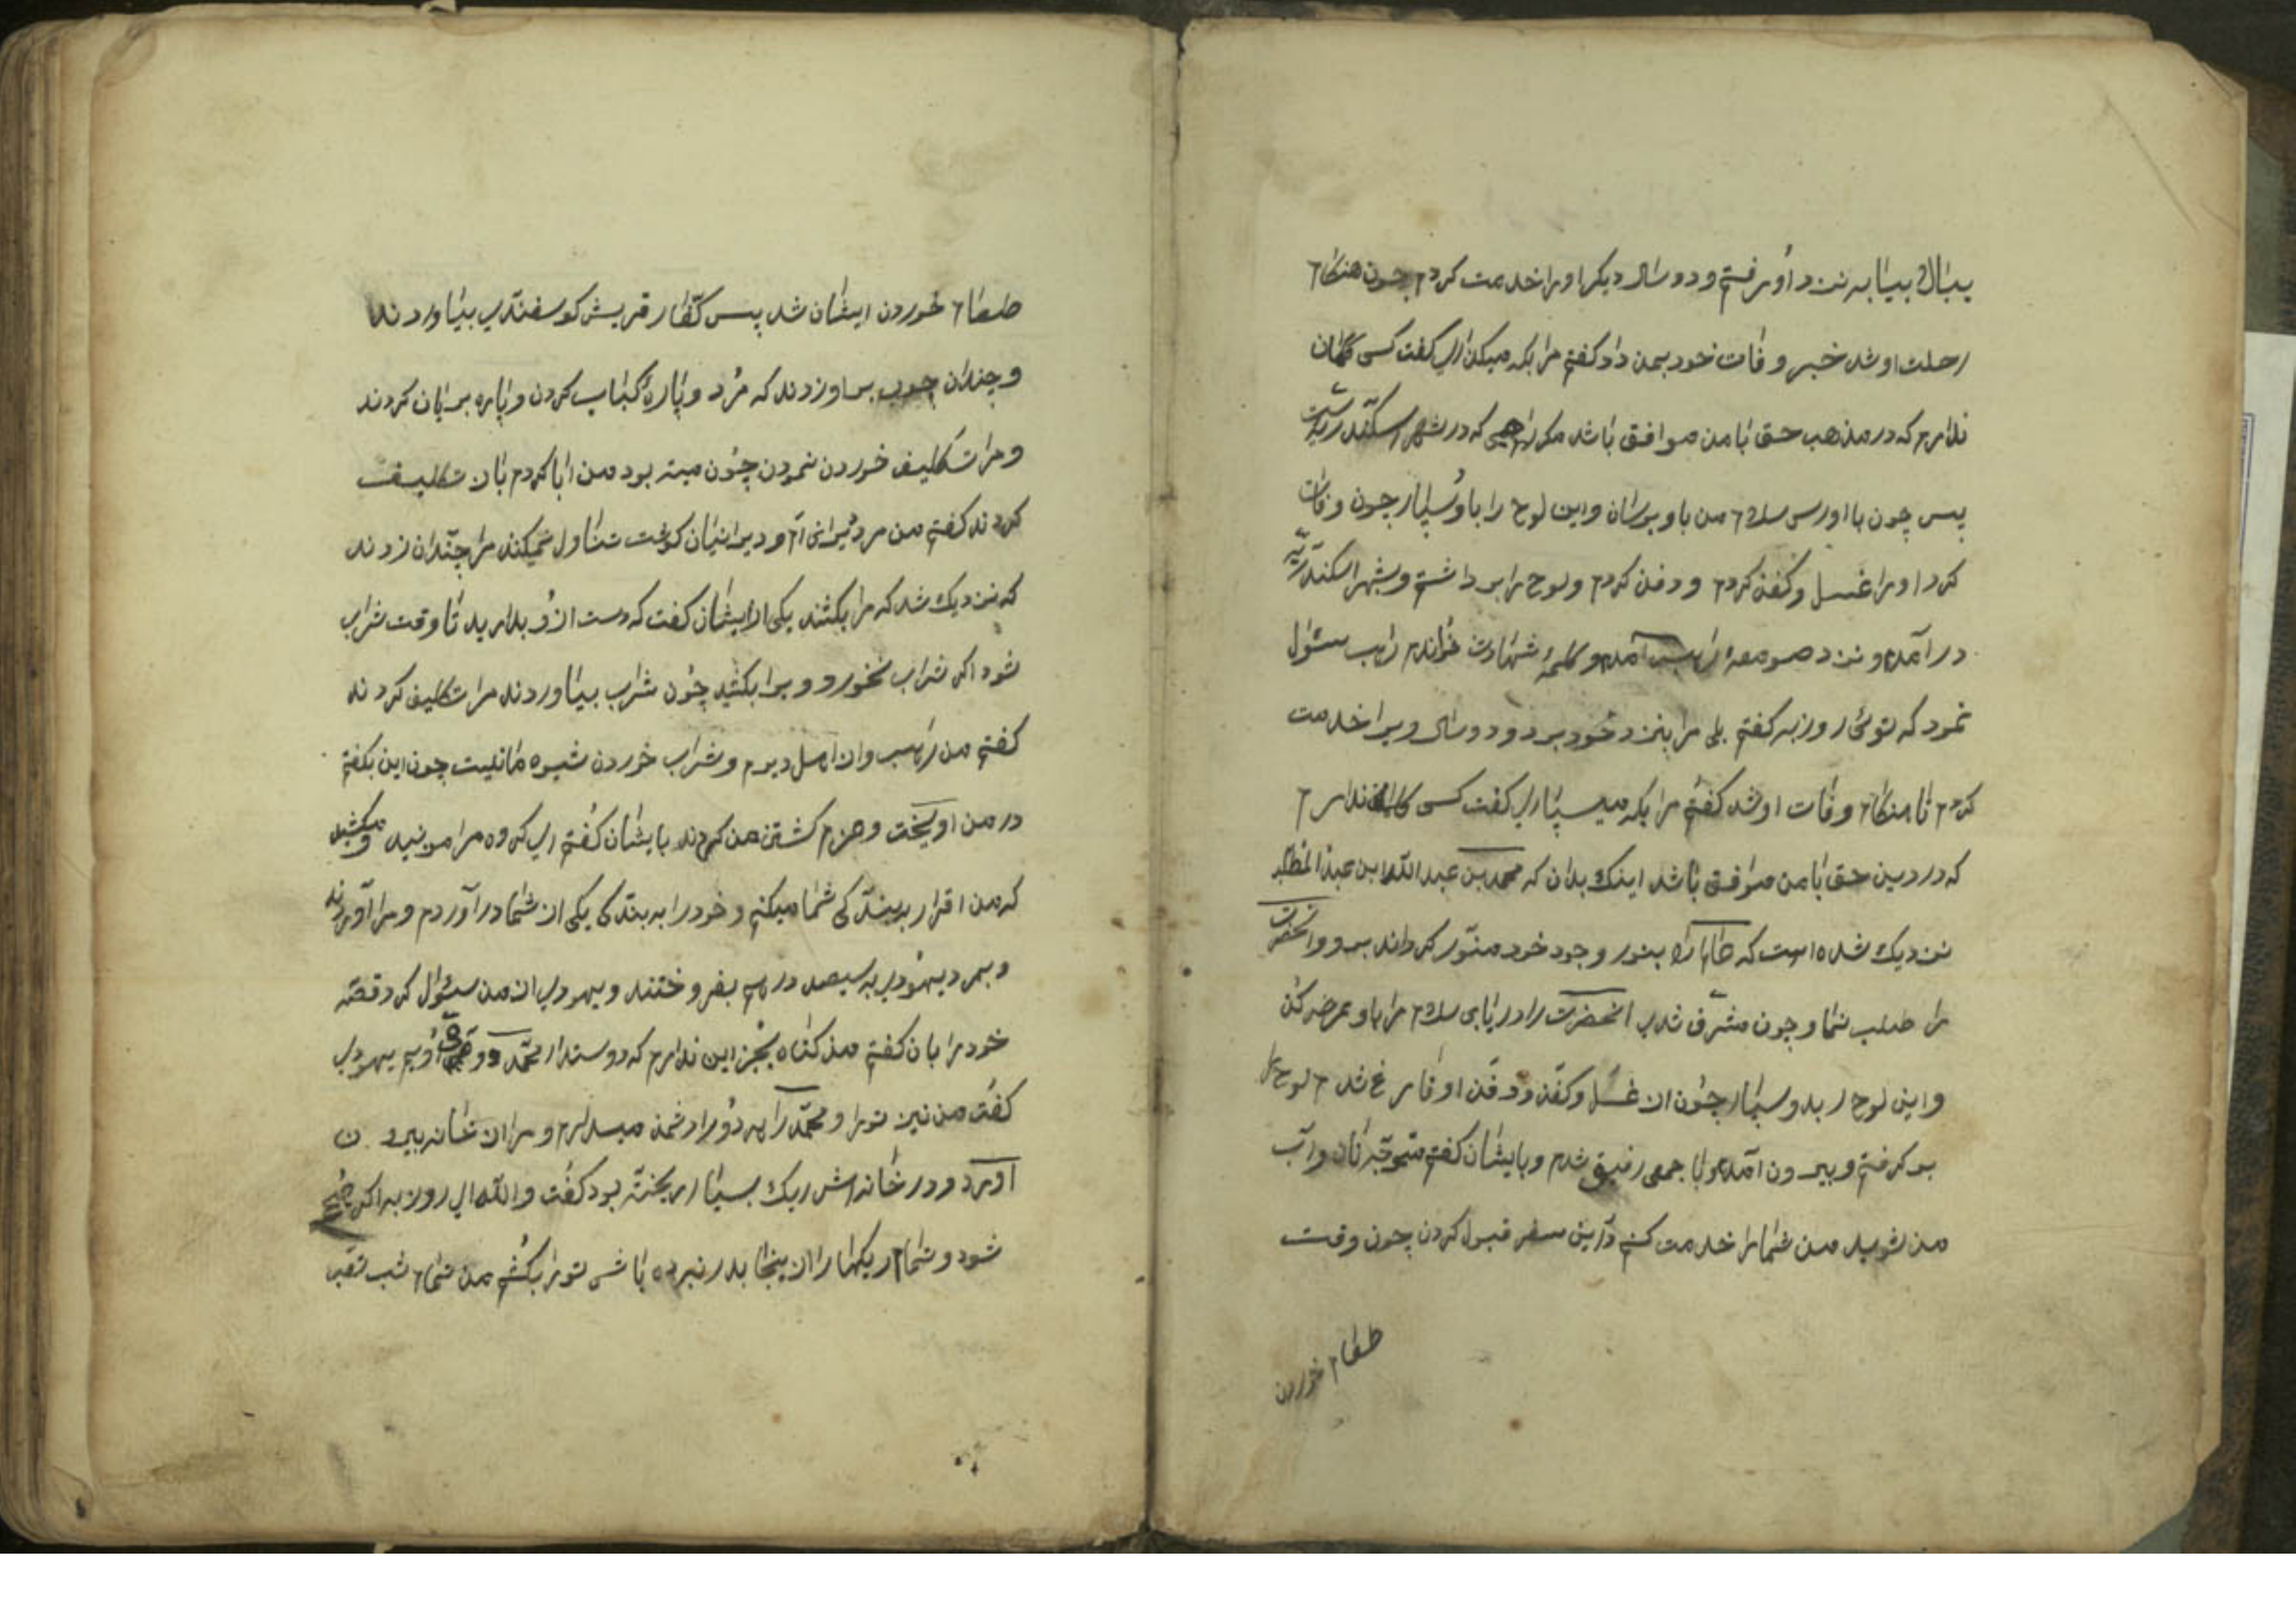 ببالا بیا به نزد او رفتم و دو سال دیگر او را خدمت کردم چون هنگام
رحلت او شد خبر وفات خود بمن داد گفتم مرا بکه میگذاری گفت کسی گمان
ندارم که در مذهب حق با من موافق باشد مگر راهبی که در شهر اسکندریه است
پس چون باو رسی سلام من باو برسان و این لوح را باو بسپار چون وفات
کرد او را غسل و کفن کردم و دفن کردم و لوح را برداشتم و بشهر اسکندریه
در آمدم و نزد صومعهٔ راهب آمدم و کلمهٔ شهادت خواندم راهب سئوال
نمود که توئی روزبه گفتم بلی مرا بنزد خود برد و دو سال ویرا خدمت
کردم تا هنگام وفات او شد گفتم مرا بکه میسپاری گفت کسی کمان ندارم
که در دین حق با من موافق باشد اینک بدان که محمد بن عبدالله ابن عبد المطلب
نزدیک شده است که بنور وجود خود منور گرداند برو و آنحضرت
را طلب نما و چون مشرف شدی آنحضرت را دریابی سلام مرا باو عرضه کن
و این لوح را بدو بسپار چون از غسل و کفن و دفن او فارغ شدم لوح را
بر گرفتم و بیرون آمدم و با جمعی رفیق شدم و بایشان گفتم متوجه نان و آب
من شوید من شما را خدمت کنم در این سفر قبول کردن چون وقت
طعام خوردن
طعام خوردن ایشان شد پس کفار قریش کوسفندی بیاوردند
و چندان چوب بر او زدند که مُرد و پارهٔ کباب کردن و پاره بریان کردند
و مرا تکلیف خوردن نمودن چون میته بود من ابا کردم باز تکلیف
کردند گفتم من مرد دیرانی ام و دیرانیان گوشت تناول نمیکنند مرا چندان زدند
که نزدیک شد که مرا بکشند یکی از ایشان گفت که دست از او بدارید تا وقت شراب
شود اگر شراب نخورد ویرا بکشید چون شراب بیاوردند مرا تکلیف کردند
گفتم من راهب و از اهل دیرم و شراب خوردن شیوه ما نیست چون این بگفتم
در من اویخت و عزم کشتن من کردند بایشان گفتم ای کروه مرا مزنید و مکشید
که من اقرار به بندگی شما میکنم و خود را به بندگی یکی از شما در آوردم و مرا آوردند
و بمرد یهودی به سیصد درهم بفروختند و یهودی از من سئوال کرد قصه
خود را باز گفتم من گناه بجز این ندارم که دوستدار محمد و وصی اویم یهودی
گفت من نیز ترا و محمد را هر دو را دشمن میدارم و مرا از خانه بیرون
آورد و در خانه‌اش ریک بسیار ریخته بود گفت والله ای روزبه اگر صبح
شود و تمام ریکها را از اینجا بدر نبرده باشی تو را بکشم من تمام شب تعب